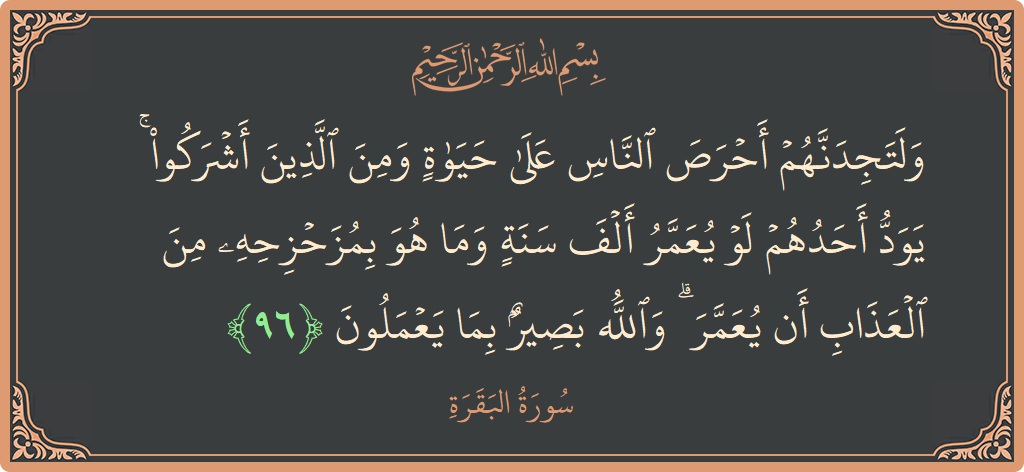 بِسْمِ اللَّهِ الرَّحْمَٰنِ الرَّحِيمِ
وَلَتَجِدَنَّهُمۡ أَحۡرَصَ ٱلنَّاسِ عَلَىٰ حَيَوٰةٍ وَمِنَ ٱلَّذِينَ أَشۡرَكُواْۚ
يَوَدُّ أَحَدُهُمۡ لَوۡ يُعَمَّرُ أَلۡفَ سَنَةٍ وَمَا هُوَ بِمُزَحۡزِحِهِۦ مِنَ
ٱلۡعَذَابِ أَن يُعَمَّرَۗ وَٱللَّهُ بَصِيرُۢ بِمَا يَعۡمَلُونَ ﴿٩٦﴾
سُورَةُ البَقَرَةِ